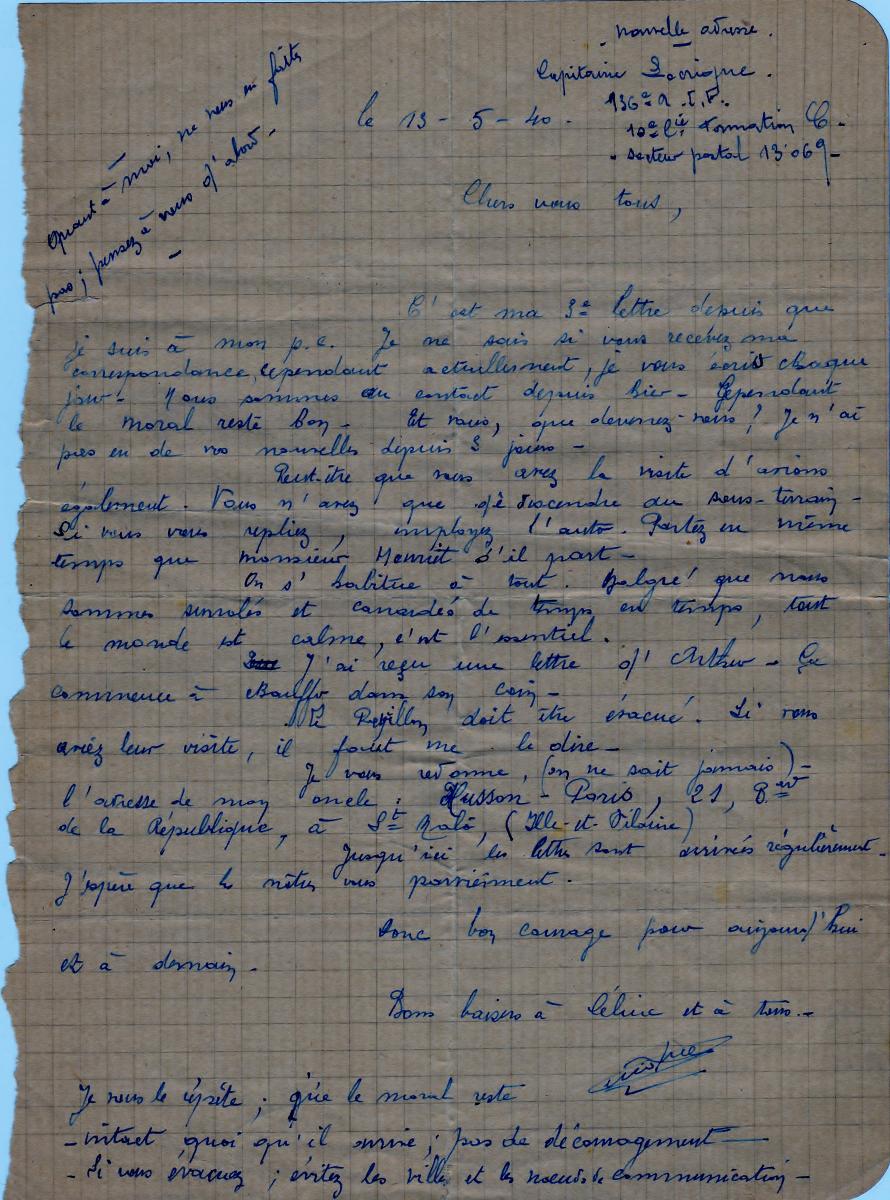 - nouvelle adresse.
Capitaine
136e R.I.F.
10e Cie Formation C -
- secteur postal 13 069 -
le 13 - 5 - 40 -
Quant à moi, ne vous en faites
pas ; pensez à vous d'abord -
Chers vous tous,
C'est ma 3e lettre depuis que
je suis à mon p.c. Je ne sais si vous recevez ma
correspondance, cependant actuellement, je vous écris chaque
jour - Nous sommes au contact depuis hier - Cependant
le moral reste bon - Et vous, que devenez-vous ? Je n'ai
pas eu de vos nouvelles depuis 3 jours -
Peut-être que vous avez la visite d'avions
également. Vous n'avez que de descendre au sous-terrain -
Si vous vous repliez, employez l'auto. Partez en même
temps que monsieur Henriet s'il part -
On s'habitue à tout. Malgré que nous
sommes survolés et canardés de temps en temps, tout
le monde est calme, c'est l'essentiel.
J'ai reçu une lettre d'Arthur - Ça
commence à dans son coin -
Le doit être évacué. Si vous
aviez leur visite, il faut me le dire -
Je vous redonne, (on ne sait jamais) -
l'adresse de mon oncle : Husson - Paris, 21, Bard
de la République, à St Malo, (Ille-et-Vilaine)
Jusqu'ici les lettres sont arrivées régulièrement -
J'espère que les nôtres vous parviennent.
Donc bon courage pour aujourd'hui
et à demain -
Bons baisers à Céline et à tous -
Je vous le répète ; que le moral reste
- intact quoi qu'il arrive ; pas de découragement -
- Si vous évacuez ; évitez les villes et les noeuds de communication -